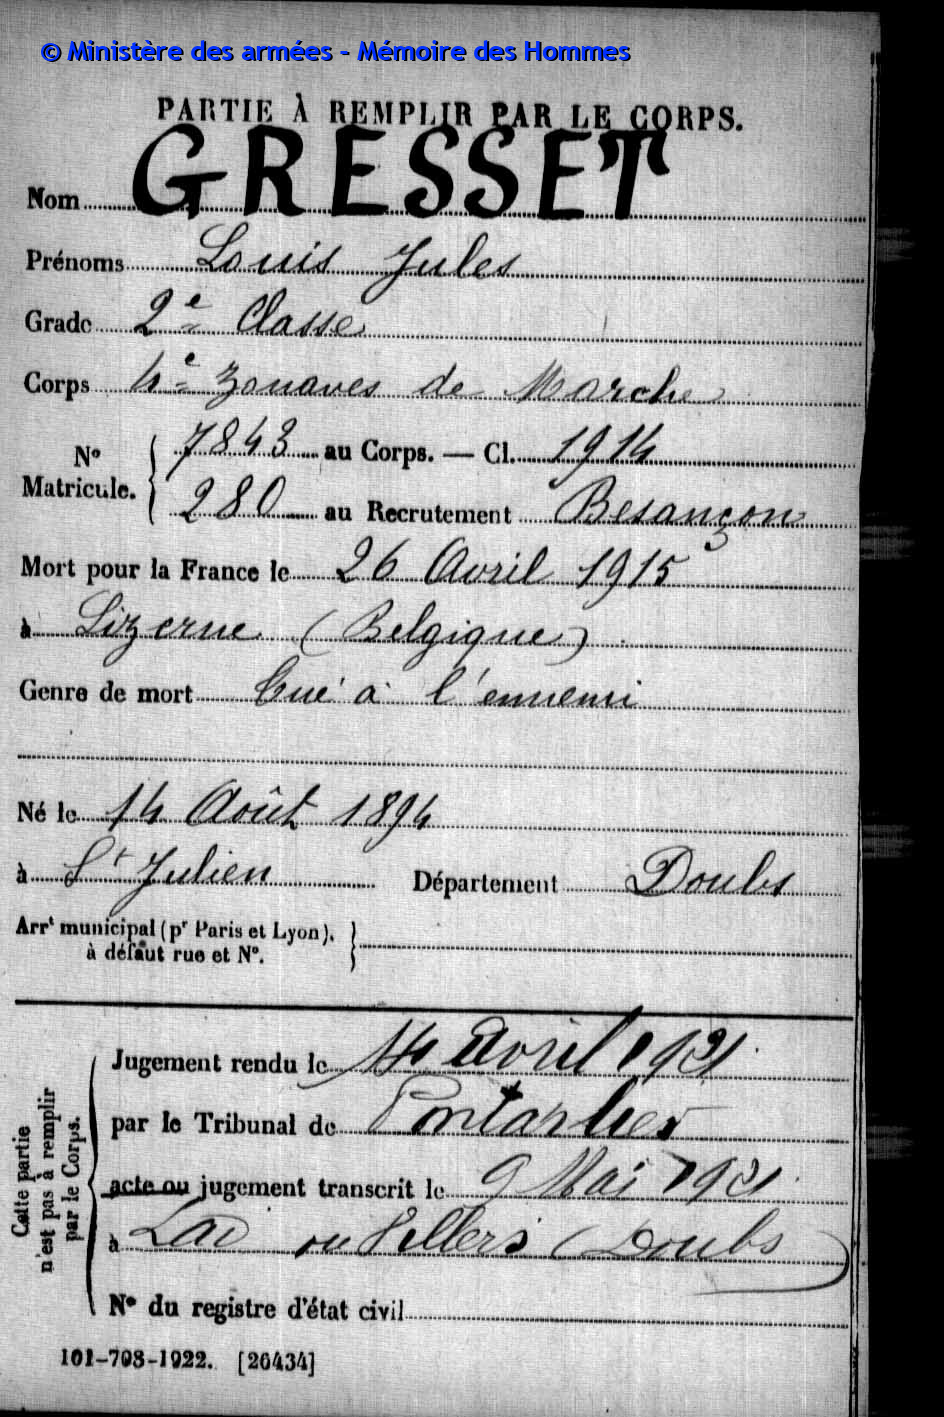 © Ministère des armées - Mémoire des Hommes
PARTIE À REMPLIR PAR LE CORPS.
Nom GRESSET
Prénoms Louis Jules
Grade 2e Classe
Corps 4e Zouaves de Marche
N° Matricule. 7843 au Corps. — Cl. 1914
280 au Recrutement Besançon
Mort pour la France le 26 Avril 1915
à Lizerne (Belgique)
Genre de mort Tué à l'ennemi
Né le 14 Août 1894
à St Julien Département Doubs
Arrt municipal (pr Paris et Lyon),
à défaut rue et N°.
Cette partie n'est pas à remplir par le Corps.
Jugement rendu le 14 avril 1921
par le Tribunal de Pontarlier
acte ou jugement transcrit le 9 Mai 1921
à Lac ou Villers (Doubs)
N° du registre d'état civil
101-708-1922. [26434]